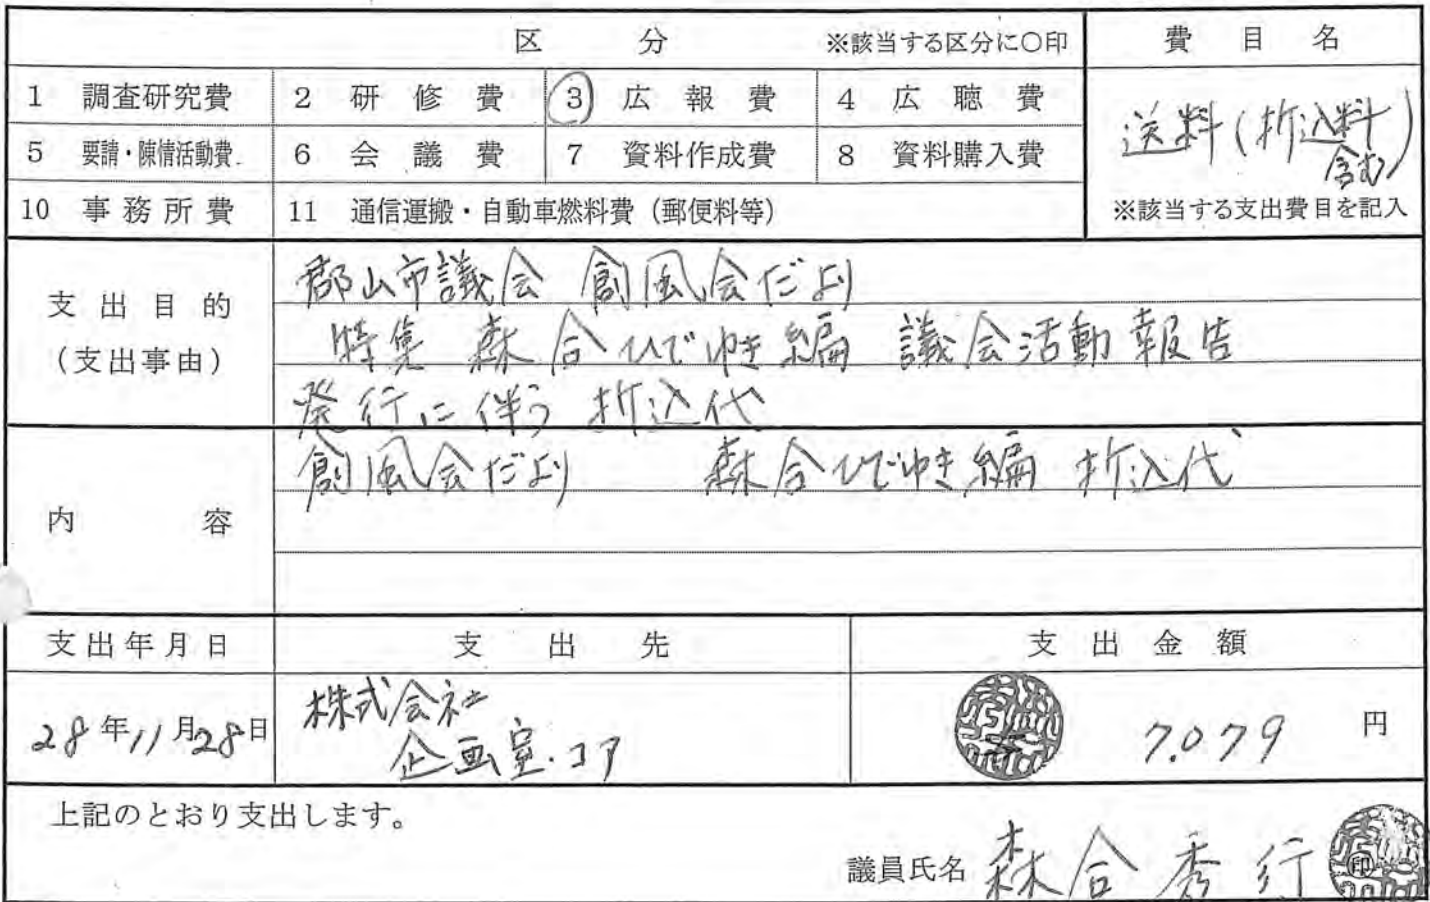 区 分 ※該当する区分に○印 費 目 名
1 調査研究費 2 研 修 費 3 広 報 費 4 広 聴 費
送料(折込料
含む)
5 要請・陳情活動費 6 会 議 費 7 資料作成費 8 資料購入費
10 事務所費 11 通信運搬・自動車燃料費(郵便料等) ※該当する支出費目を記入
支出目的
(支出事由)
郡山市議会 創風会だより
特集 森合ひでゆき編 議会活動報告
発行に伴う 折込代
内 容
創風会だより 森合ひでゆき編 折込代
支出年月日 支 出 先 支 出 金 額
28年11月28日
株式会社
企画室・コア
7.079 円
上記のとおり支出します。
議員氏名 森合秀行 印